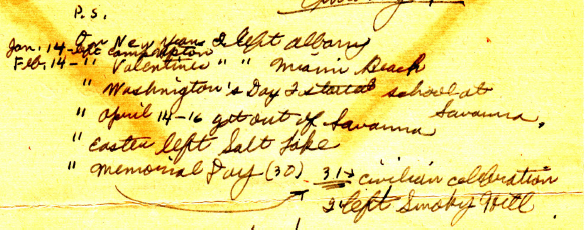 P.S.
On New Years I left Albany
Jan. 14 - left Compton
Feb. 14 - " Valentines " " Miami Beach
" Washington's Day I started school at Savanna,
" April 14-16 got out of Savanna
" Easter left Salt Lake
" Memorial Day (30) 31st civilian celebration
I left Smoky Hill